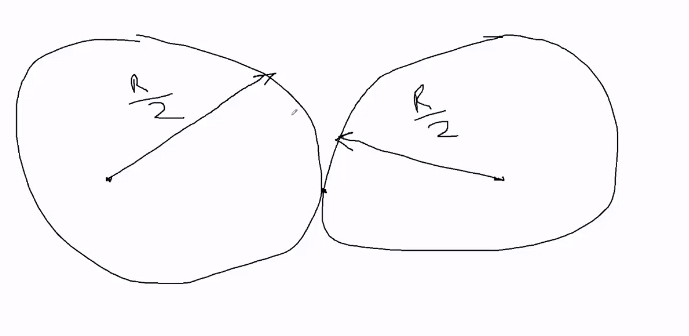 R/2
R/2